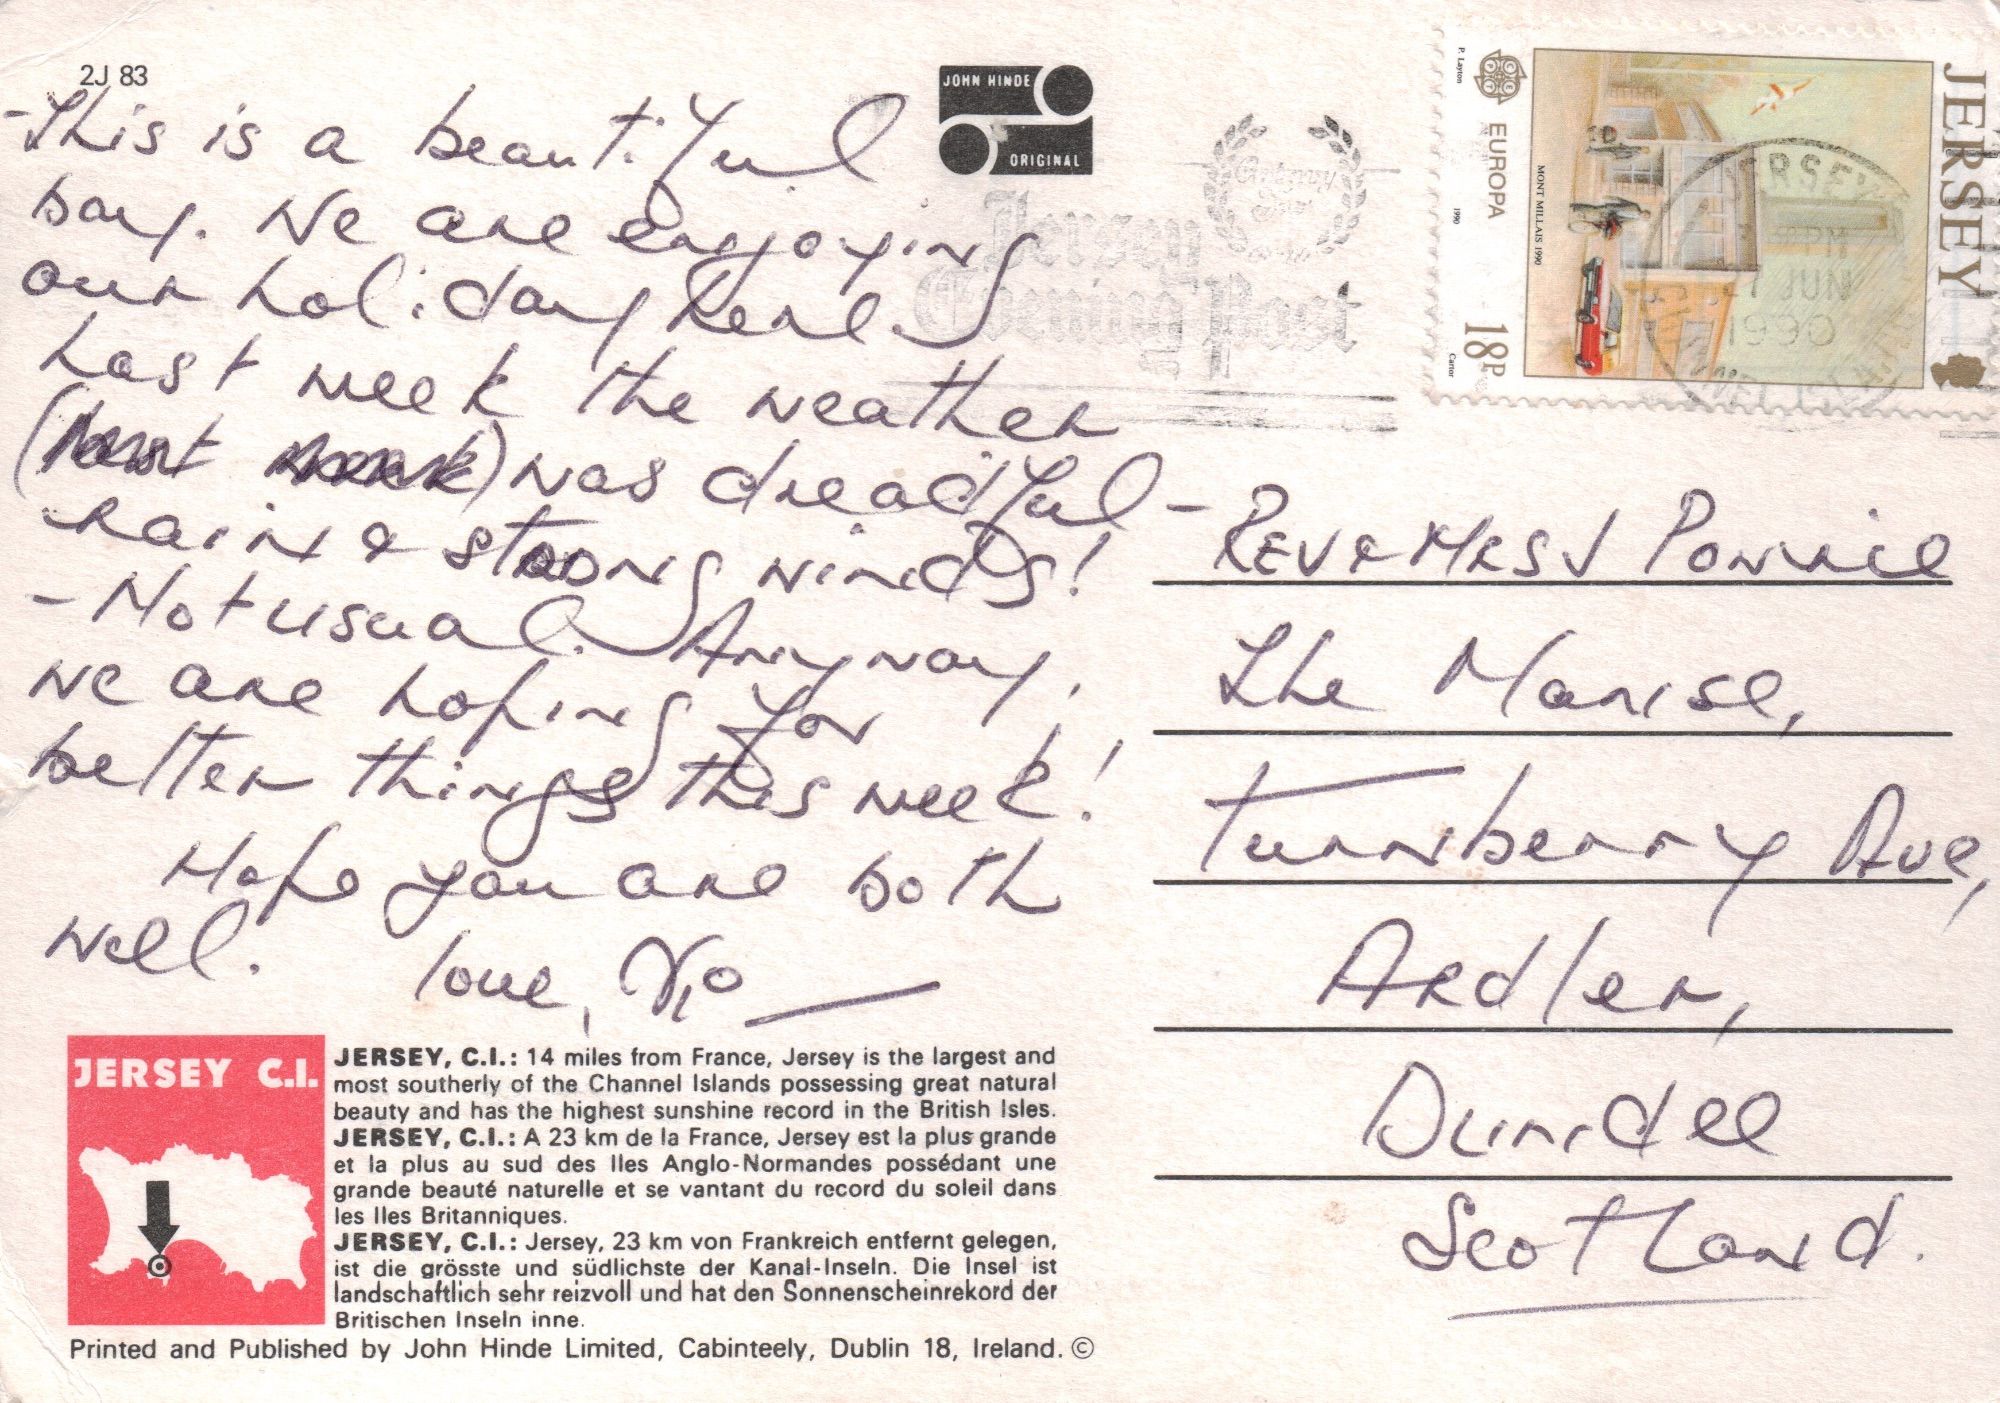 2J 83
JOHN HINDE
ORIGINAL
- This is a beautiful
bay. We are enjoying
our holiday here.
Last week the weather
was dreadful -
rain & strong winds!
- Not usual. Anyway,
we are hoping for
better things this week!
Hope you are both
well. love, Vio
JERSEY C.I.
JERSEY, C.I.: 14 miles from France, Jersey is the largest and
most southerly of the Channel Islands possessing great natural
beauty and has the highest sunshine record in the British Isles.
JERSEY, C.I.: A 23 km de la France, Jersey est la plus grande
et la plus au sud des Iles Anglo-Normandes possédant une
grande beauté naturelle et se vantant du record du soleil dans
les Iles Britanniques.
JERSEY, C.I.: Jersey, 23 km von Frankreich entfernt gelegen,
ist die grösste und südlichste der Kanal-Inseln. Die Insel ist
landschaftlich sehr reizvoll und hat den Sonnenscheinrekord der
Britischen Inseln inne.
Printed and Published by John Hinde Limited, Cabinteely, Dublin 18, Ireland. ©
Jersey
Evening Post
JERSEY
EUROPA
18P
MONT MILLAIS 1990
P. Layton
1990
Cartor
JERSEY
PM
JUN
1990
CHANNEL ISLANDS
REV & MRS J POWRIE
The Manse,
Turnberry Ave,
Ardler,
Dundee
Scotland.